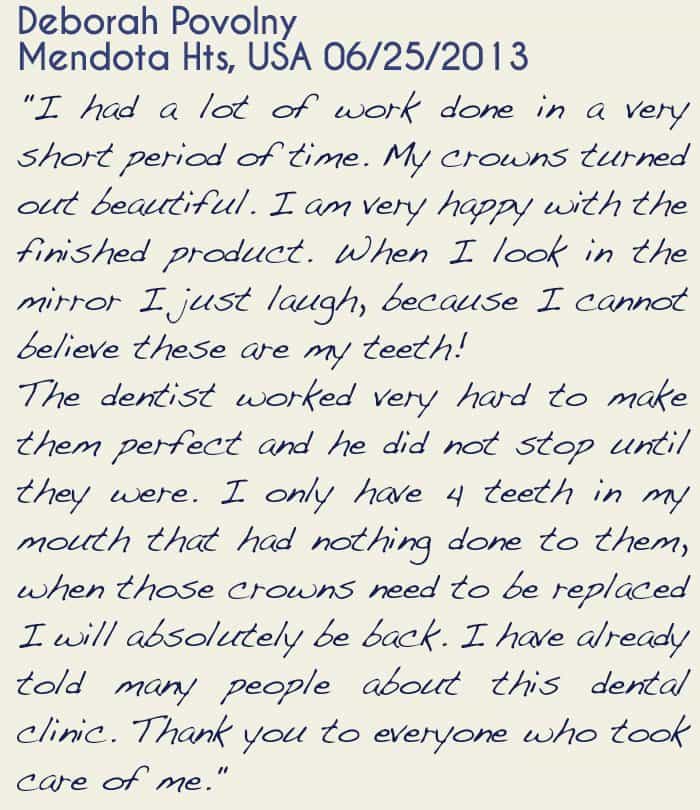 Deborah Povolny
Mendota Hts, USA 06/25/2013
"I had a lot of work done in a very
short period of time. My crowns turned
out beautiful. I am very happy with the
finished product. When I look in the
mirror I just laugh, because I cannot
believe these are my teeth!
The dentist worked very hard to make
them perfect and he did not stop until
they were. I only have 4 teeth in my
mouth that had nothing done to them,
when those crowns need to be replaced
I will absolutely be back. I have already
told many people about this dental
clinic. Thank you to everyone who took
care of me."